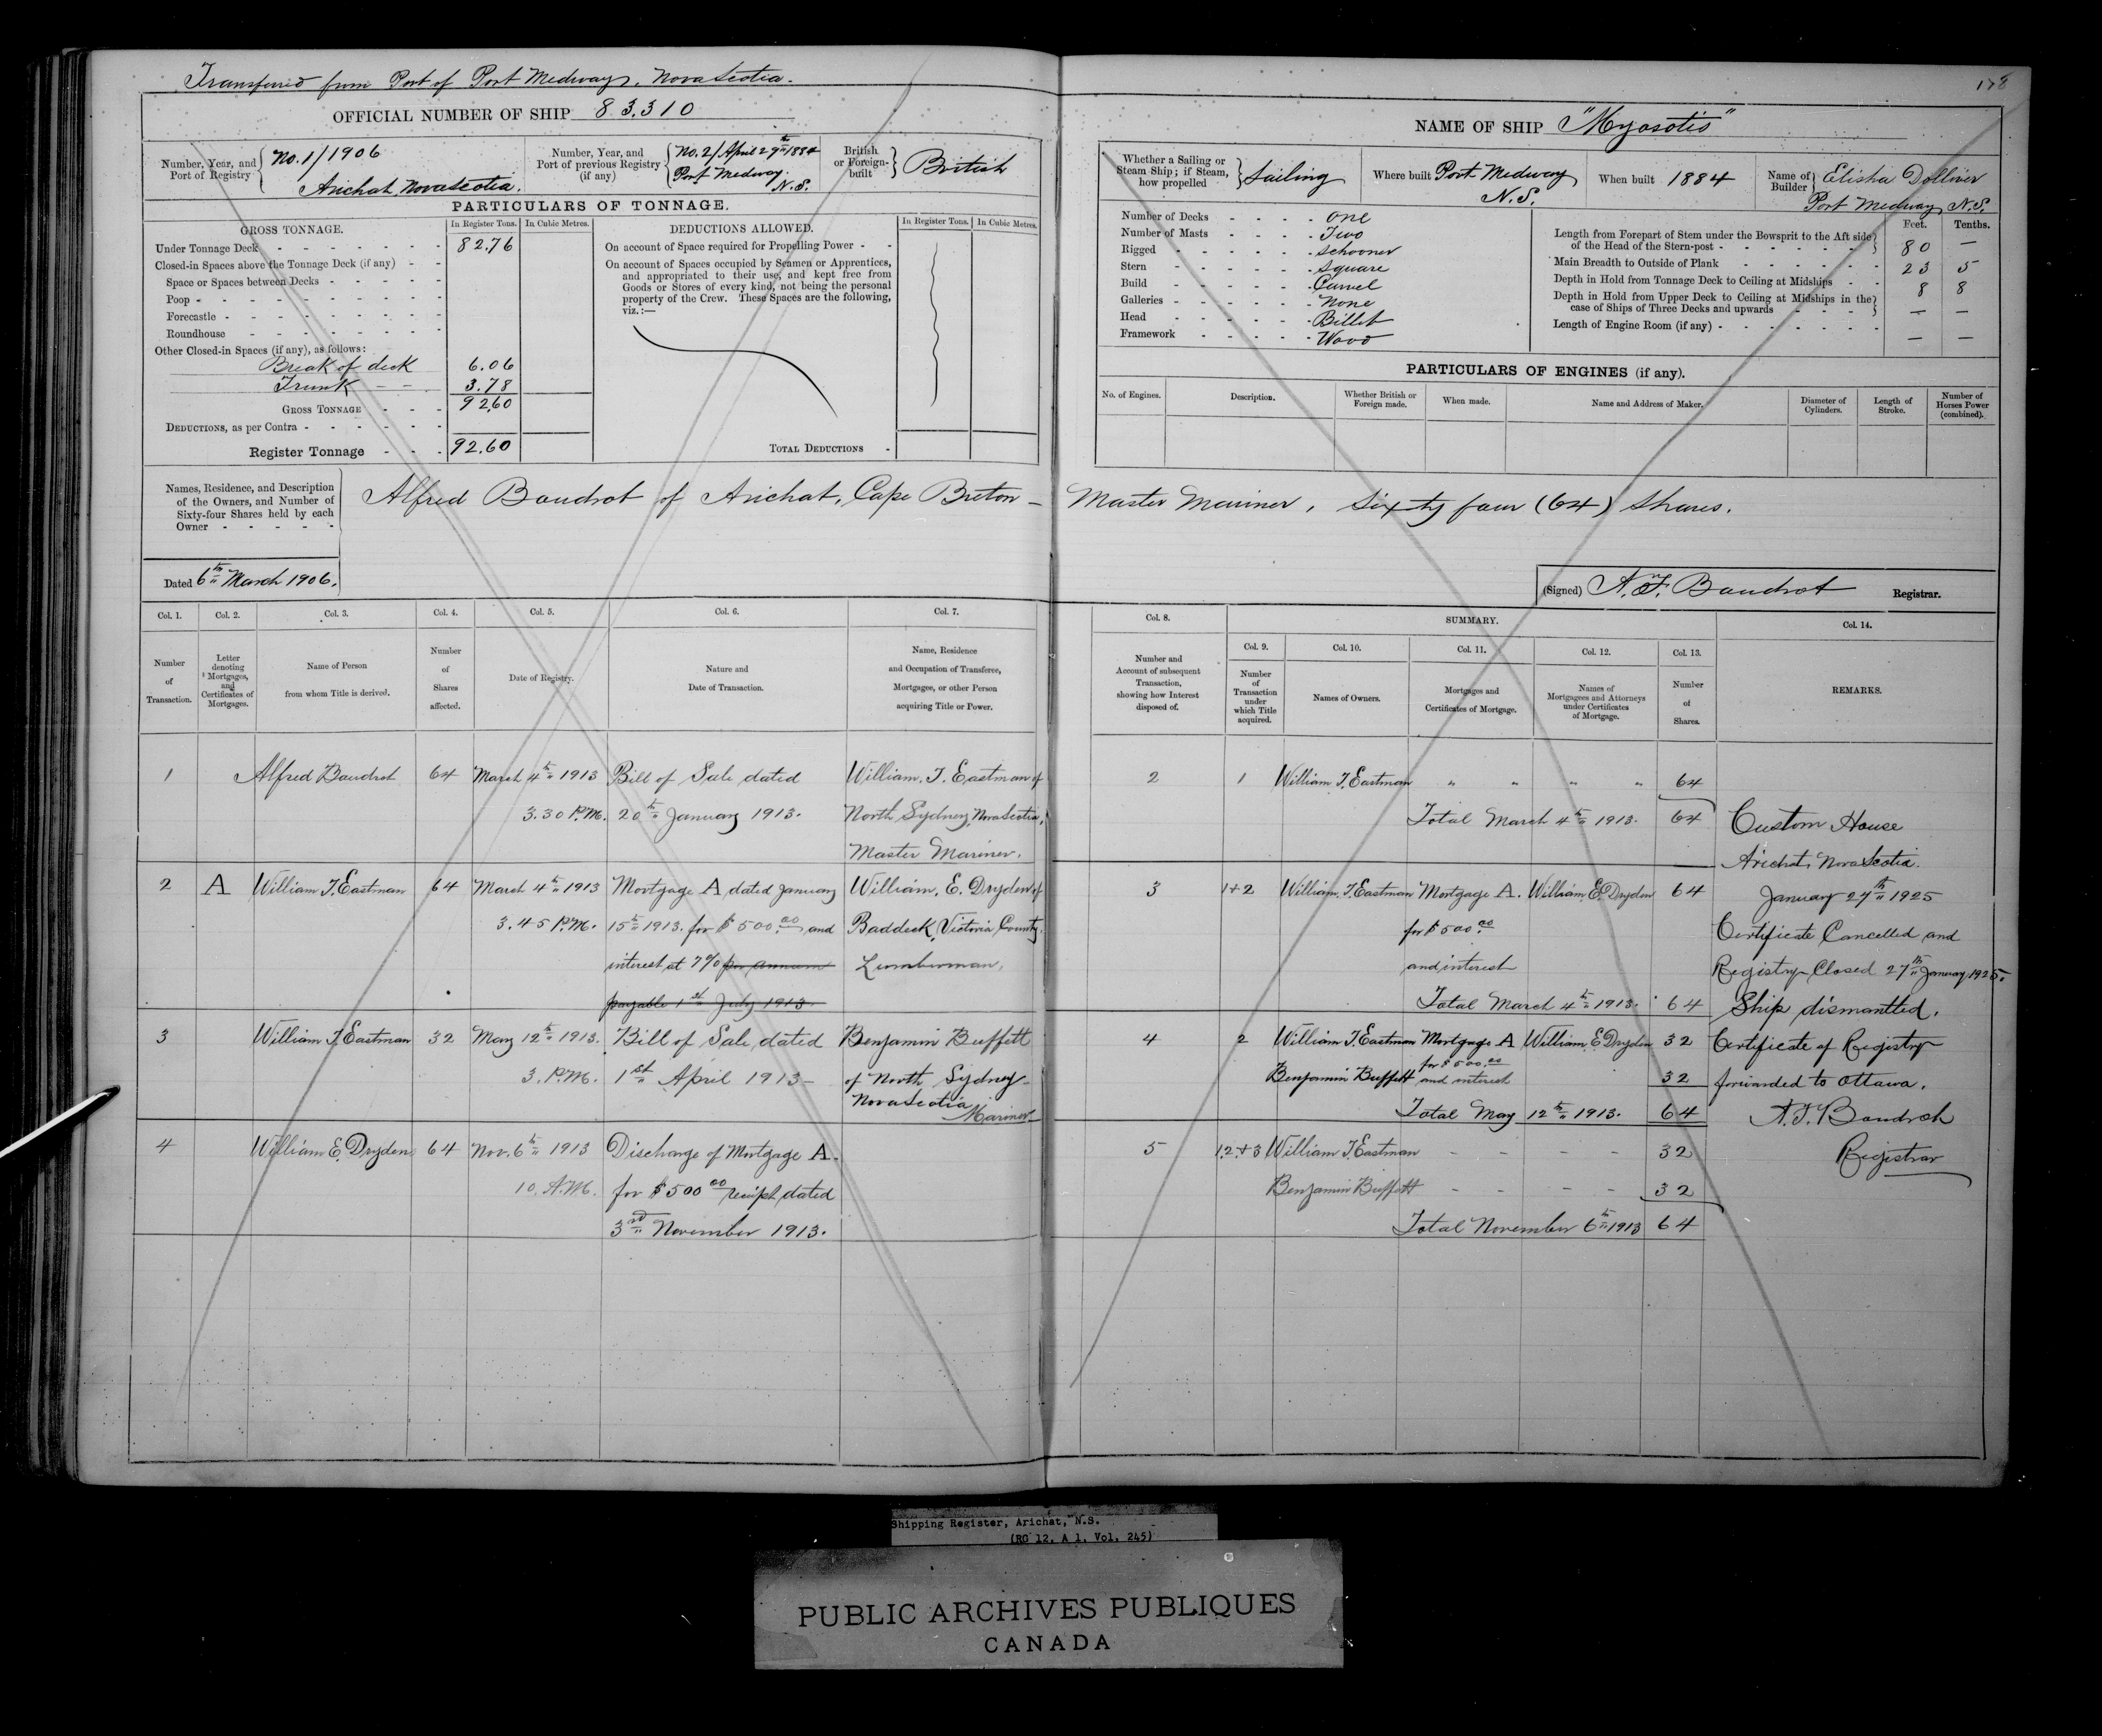 Transferred from Port of Port Medway, Nova Scotia.
178
OFFICIAL NUMBER OF SHIP 83,310
Number, Year, and Port of Registry
No. 1/1906
Arichat, Nova Scotia.
Number, Year, and Port of previous Registry (if any)
No. 2/ April 29th 1884
Port Medway. N.S.
British or Foreign-built
British
PARTICULARS OF TONNAGE.
GROSS TONNAGE.
In Register Tons.
In Cubic Metres.
DEDUCTIONS ALLOWED.
In Register Tons.
In Cubic Metres.
Under Tonnage Deck 82.76
Closed-in Spaces above the Tonnage Deck (if any)
Space or Spaces between Decks
Poop
Forecastle
Roundhouse
Other Closed-in Spaces (if any), as follows:
Break of deck 6.06
Trunk 3.78
GROSS TONNAGE 92.60
DEDUCTIONS, as per Contra
Register Tonnage 92.60
On account of Space required for Propelling Power
On account of Spaces occupied by Seamen or Apprentices,
and appropriated to their use, and kept free from
Goods or Stores of every kind, not being the personal
property of the Crew. These Spaces are the following,
viz.:—
TOTAL DEDUCTIONS
NAME OF SHIP "Myosotis"
Whether a Sailing or Steam Ship; if Steam, how propelled
Sailing
Where built Port Medway N.S.
When built 1884
Name of Builder Elisha Dolliver
Port Medway N.S.
Number of Decks One
Number of Masts Two
Rigged Schooner
Stern Square
Build Carvel
Galleries None
Head Billet
Framework Wood
Feet. Tenths.
Length from Forepart of Stem under the Bowsprit to the Aft side
of the Head of the Stern-post 80 —
Main Breadth to Outside of Plank 23 5
Depth in Hold from Tonnage Deck to Ceiling at Midships 8 8
Depth in Hold from Upper Deck to Ceiling at Midships in the
case of Ships of Three Decks and upwards — —
Length of Engine Room (if any) — —
PARTICULARS OF ENGINES (if any).
No. of Engines.
Description.
Whether British or Foreign made.
When made.
Name and Address of Maker.
Diameter of Cylinders.
Length of Stroke.
Number of Horses Power (combined).
Names, Residence, and Description
of the Owners, and Number of
Sixty-four Shares held by each
Owner
Alfred Boudrot of Arichat, Cape Breton — Master Mariner, Sixty four (64) Shares.
Dated 6th March 1906.
(Signed) A. F. Boudrot Registrar.
Col. 1.
Number of Transaction.
Col. 2.
Letter denoting Mortgages, and Certificates of Mortgages.
Col. 3.
Name of Person from whom Title is derived.
Col. 4.
Number of Shares affected.
Col. 5.
Date of Registry.
Col. 6.
Nature and Date of Transaction.
Col. 7.
Name, Residence and Occupation of Transferee, Mortgagee, or other Person acquiring Title or Power.
Col. 8.
Number and Account of subsequent Transaction, showing how Interest disposed of.
SUMMARY.
Col. 9.
Number of Transaction under which Title acquired.
Col. 10.
Names of Owners.
Col. 11.
Mortgages and Certificates of Mortgage.
Col. 12.
Names of Mortgagees and Attorneys under Certificates of Mortgage.
Col. 13.
Number of Shares.
Col. 14.
REMARKS.
1 Alfred Boudrot 64 March 4th 1913 Bill of Sale dated William. T. Eastman of
3.30 P.M. 20th January 1913. North Sydney, Nova Scotia,
Master Mariner.
2 A William T. Eastman 64 March 4th 1913 Mortgage A dated January William. E. Dryden of
3.45 P.M. 15th 1913. for $500.00 and Baddeck, Victoria County.
interest at 7% per annum Lumberman,
payable 1st July 1913.
3 William T. Eastman 32 May 12th 1913. Bill of Sale, dated Benjamin Buffett
3. P.M. 1st April 1913 — of North Sydney
Nova Scotia
Mariner
4 William E. Dryden 64 Nov. 6th 1913 Discharge of Mortgage A.
10. A.M. for $500.00 receipt dated
3rd November 1913.
2 1 William T. Eastman " " " " 64
Total March 4th 1913. 64
3 1+2 William. T. Eastman Mortgage A. William E. Dryden 64
for $500.00
and interest
Total March 4th 1913. 64
4 2 William T. Eastman Mortgage A William E Dryden 32
for $500.00
Benjamin Buffett and interest 32
Total May 12th 1913. 64
5 1.2.+3 William T. Eastman - - - - 32
Benjamin Buffett - - - - 32
Total November 6th 1913 64
Custom House
Arichat, Nova Scotia.
January 27th 1925
Certificate Cancelled and
Registry Closed 27th January 1925.
Ship dismantled.
Certificate of Registry
forwarded to Ottawa.
A. F. Boudrot
Registrar
Shipping Register, Arichat, N.S.
(RG 12, A 1, Vol. 245)
PUBLIC ARCHIVES PUBLIQUES
CANADA